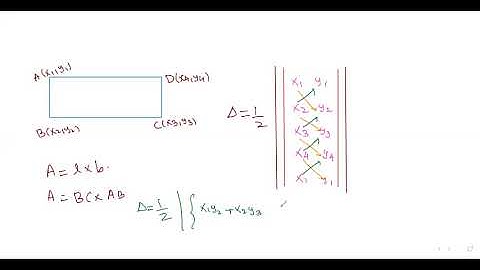 A(x1,y1)
D(x4,y4)
B(x2,y2)
C(x3,y3)
A = l x b.
A = BC x AB
Δ = 1/2
x1 y1
x2 y2
x3 y3
x4 y4
x1 y1
Δ = 1/2 | { x1y2 + x2y3